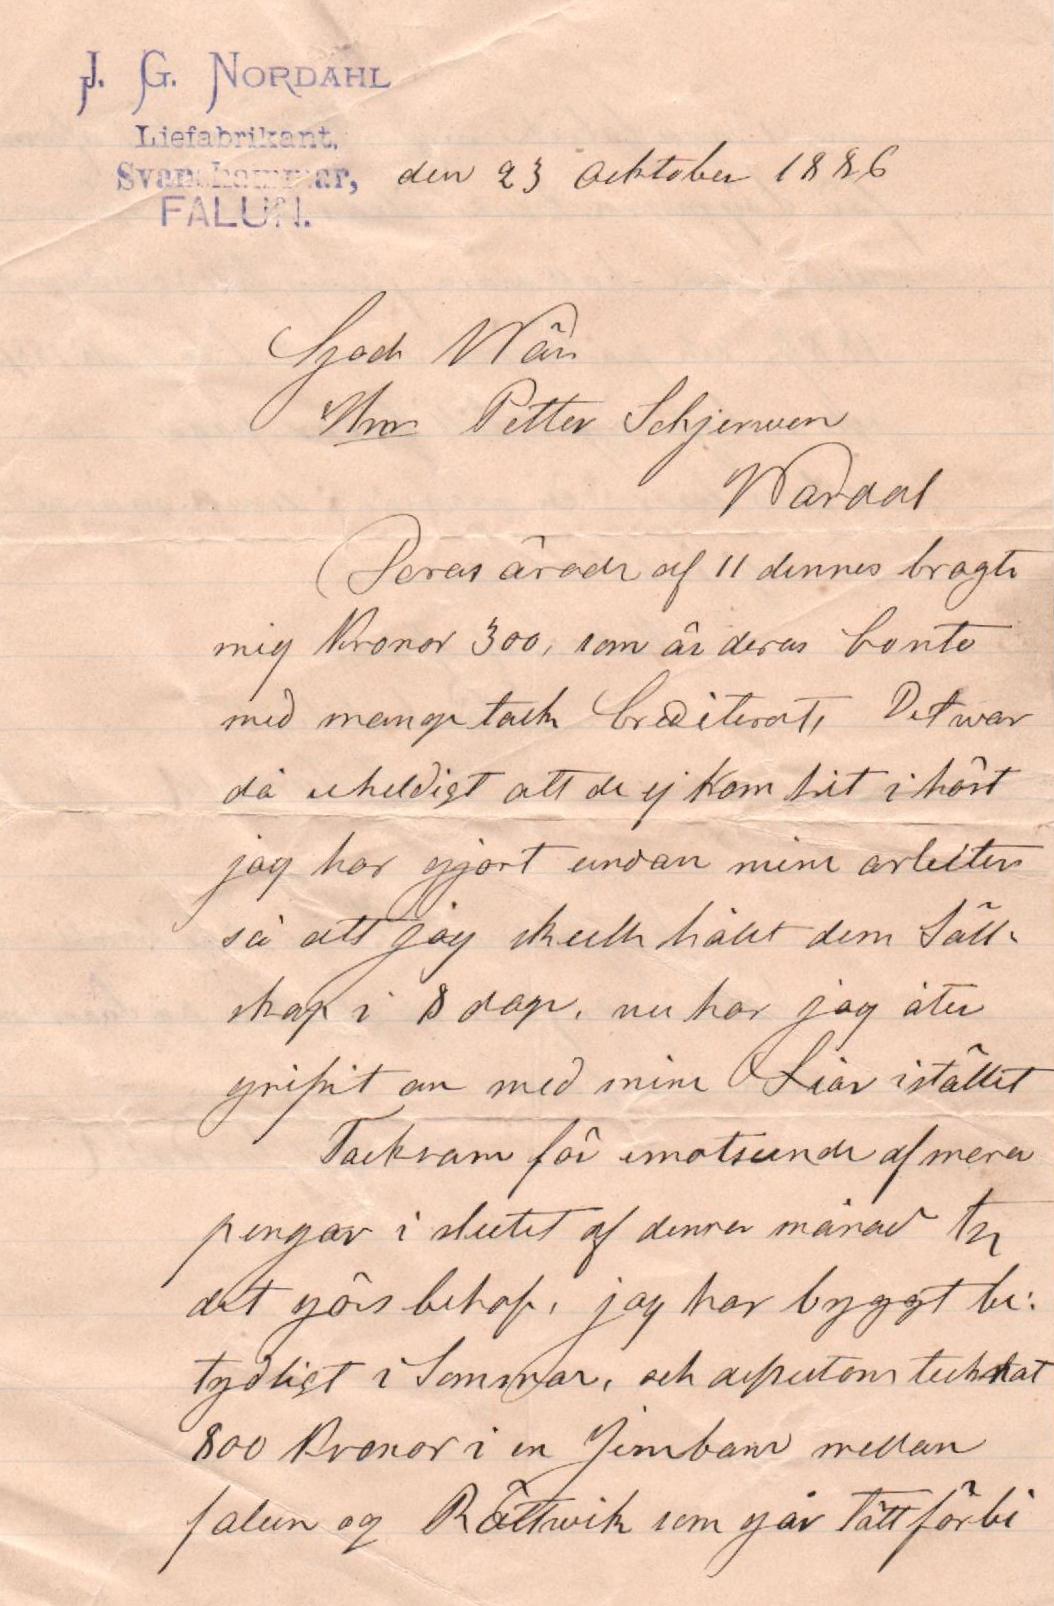 J. G. NORDAHL
Liefabrikant.
Svanshammar,
FALUN.
den 23 ocktober 1886
Gode Wän
Herr Petter Schjerwen
Wardal
Deras ärade af 11 dennes bragte
mig Kronor 300, som är deras Conto
med mange tack Crediterat, Det war
då uheldigt att de ej kom hit i höst
jag har gjort undan mine arbeiten
så att jag skulle hållt dem Säll-
skap i 8 dage. nu har jag åter
gripit an med mine Liar istället
Tacksam för emotseende af mera
pengar i slutet af denna månad ty
det görs behof, jag har byggt be:
tydligt i Sommar, och desutom tecknat
800 Kronor i en Jernbane mellan
falun og Rättwik som går tätt förbi